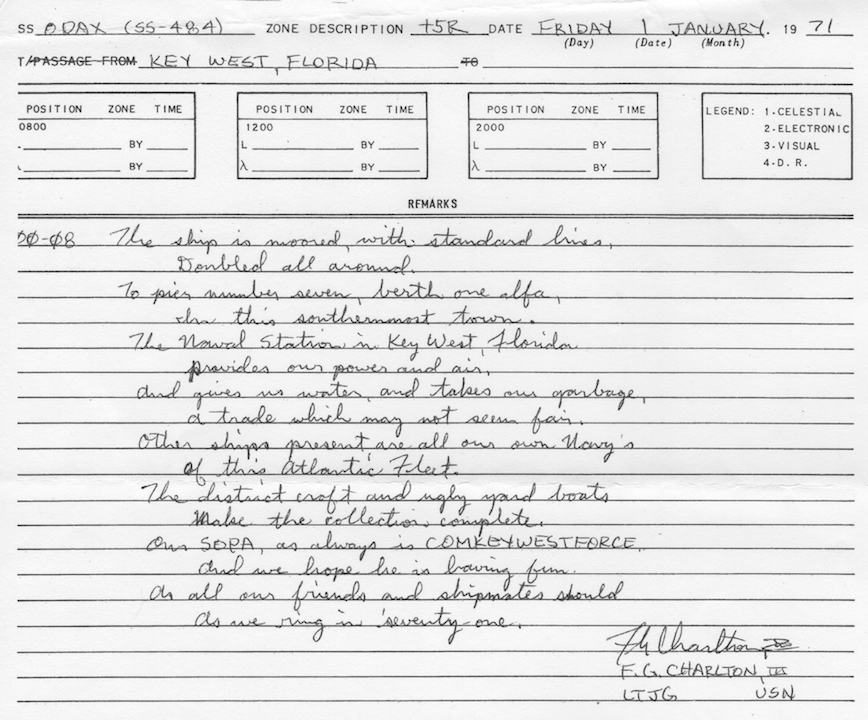 SS ODAX (SS-484) ZONE DESCRIPTION +5R DATE FRIDAY 1 JANUARY. 19 71
(Day) (Date) (Month)
T/PASSAGE FROM KEY WEST, FLORIDA TO
POSITION ZONE TIME POSITION ZONE TIME POSITION ZONE TIME LEGEND: 1-CELESTIAL
0800 1200 2000 2-ELECTRONIC
BY L BY L BY 3-VISUAL
BY λ BY λ BY 4-D. R.
REMARKS
00-08 The ship is moored, with standard lines,
Doubled all around.
To pier number seven, berth one alfa,
In this southernmost town.
The Naval Station in Key West, Florida
provides our power and air,
And gives us water, and takes our garbage,
A trade which may not seem fair.
Other ships present are all our own Navy's
of this Atlantic Fleet.
The district craft and ugly yard boats
Make the collection complete.
Our SOPA, as always is COMKEYWESTFORCE.
And we hope he is having fun.
As all our friends and shipmates should
As we ring in 'seventy-one.
F G Charlton, III
F. G. CHARLTON, III
LTJG USN